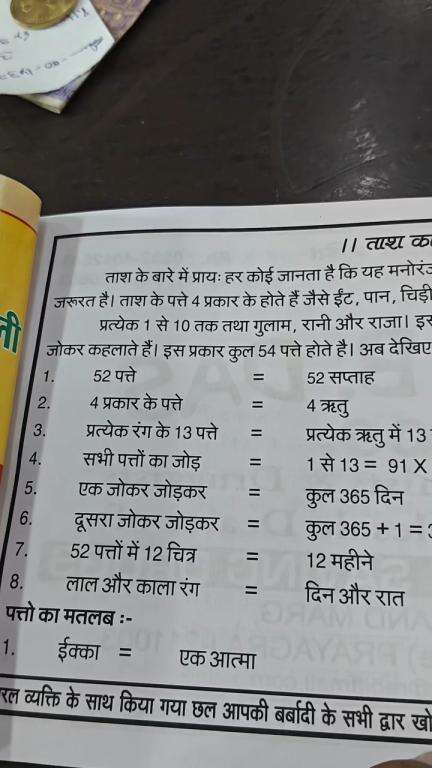 ।। ताश का
ताश के बारे में प्रायः हर कोई जानता है कि यह
जरूरत है। ताश के पत्ते 4 प्रकार के होते हैं जैसे ईंट, पान,
प्रत्येक 1 से 10 तक तथा गुलाम, रानी और राजा।
जोकर कहलाते हैं। इस प्रकार कुल 54 पत्ते होते है। अब देखिए
1. 52 पत्ते = 52 सप्ताह
2. 4 प्रकार के पत्ते = 4 ऋतु
3. प्रत्येक रंग के 13 पत्ते = प्रत्येक ऋतु में 13
4. सभी पत्तों का जोड़ = 1 से 13 = 91 X
5. एक जोकर जोड़कर = कुल 365 दिन
6. दूसरा जोकर जोड़कर = कुल 365 + 1 =
7. 52 पत्तों में 12 चित्र = 12 महीने
8. लाल और काला रंग = दिन और रात
पत्तो का मतलब :-
1. ईक्का = एक आत्मा
व्यक्ति के साथ किया गया छल आपकी बर्बादी के सभी द्वार